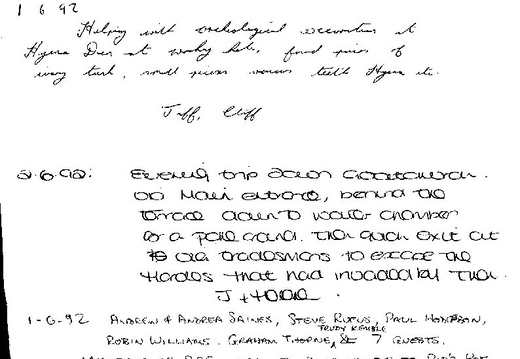 1 6 92
Helping with archeological excavations at
Hyena Den at wookey hole, found pieces of
ivory tusk, small pieces various teeth Hyena etc.
Jeff, Cliff
2.6.92: Evening trip down Goatchurch.
via Main entrance, behind the
Terrace down to water chamber
for a pose around. Then quick exit out
to old tradesmans to escape the
Hordes that had invaded by then.
1-6-92 ANDREW & ANDREA SAINES, STEVE RUFUS, PAUL
TRUDY KEMBLE
ROBIN WILLIAMS. GRAHAM THORNE, & 7 GUESTS.